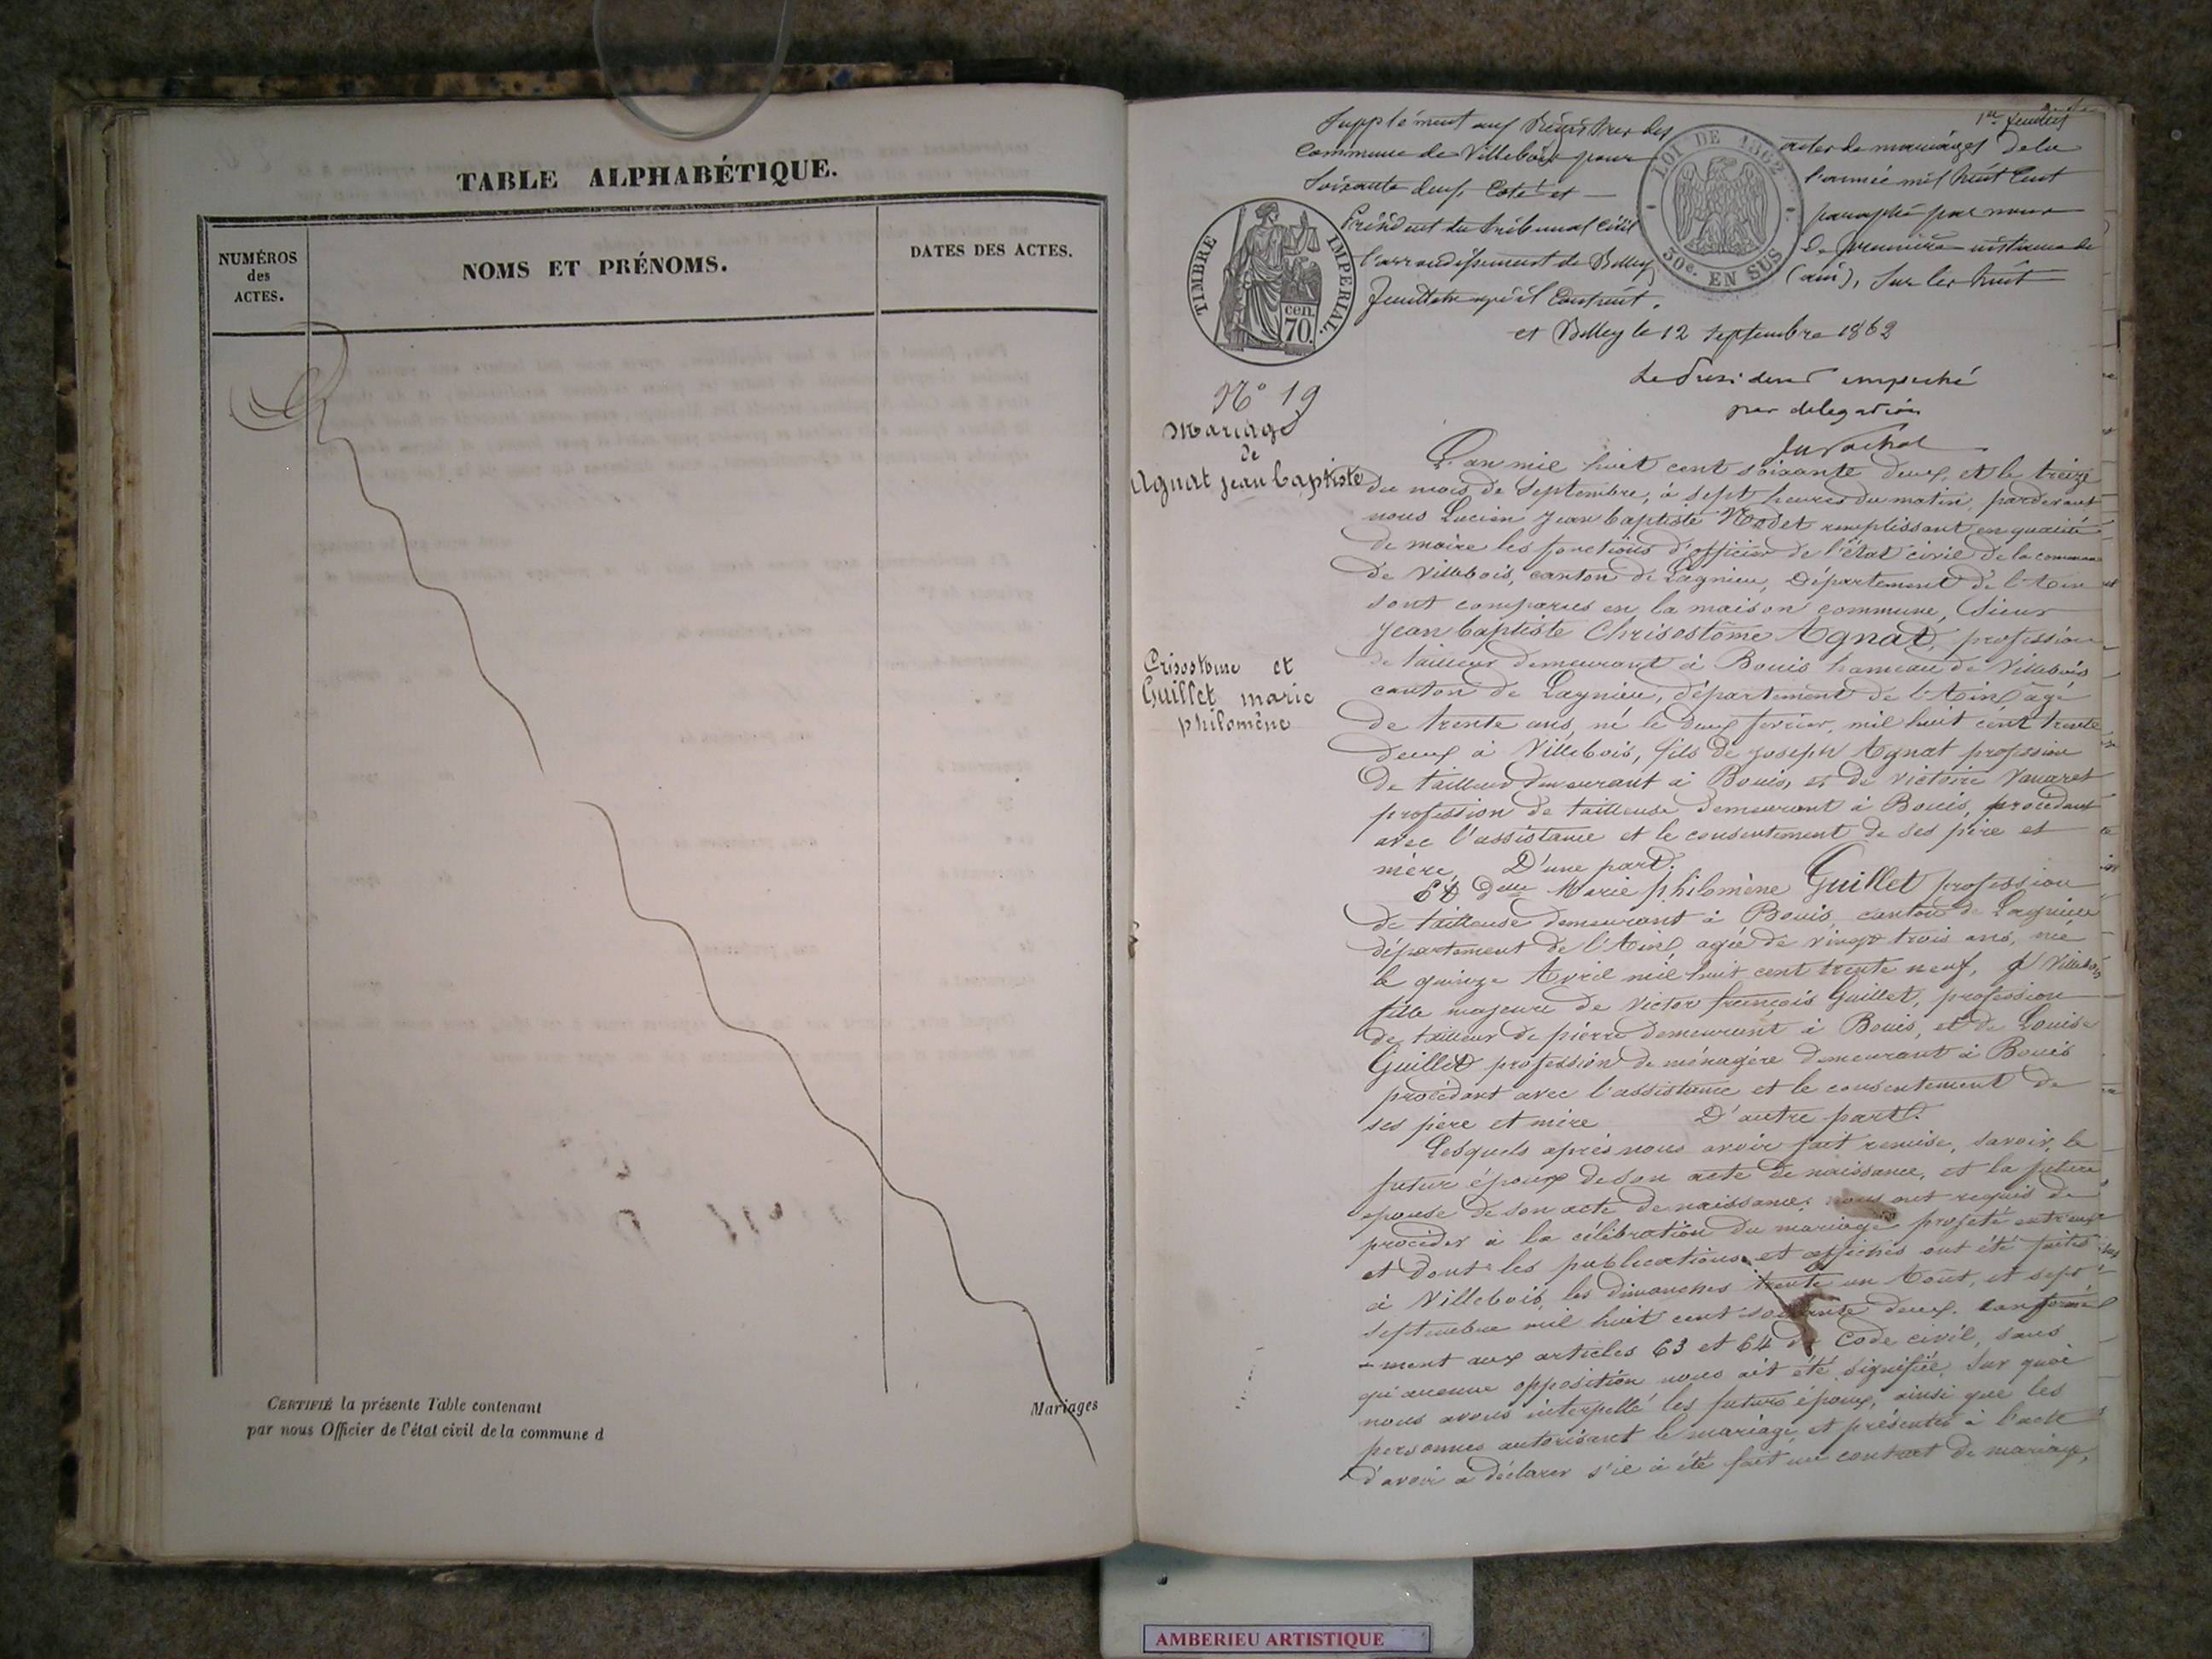 TABLE ALPHABÉTIQUE.
NUMÉROS
des
ACTES.
NOMS ET PRÉNOMS.
DATES DES ACTES.
CERTIFIÉ la présente Table contenant
Mariages
par nous Officier de l'état civil de la commune d
1er feuillet
Supplément aux Régistres des actes de mariages de la
Commune de Villebois pour l'année mil huit cent
soixante deux, Coté et paraphé par nous
Président du tribunal civil de première instance de
l'arrondissement de Belley (ain), sur les huit
feuillets qu'il contient.
et Belley le 12 septembre 1862
Le Président empeché
par delegation
LOI DE 1862
50c. EN SUS
TIMBRE IMPERIAL.
cen.
70.
No 19
Mariage
de
Agnat jean baptiste
Crisostome et
Guillet marie
philomène
L'an mil huit cent soixante deux, et le treize
du mois de Septembre, à sept heures du matin, pardevant
nous Lucien Jean baptiste Nodet remplissant en qualité
de maire les fonctions d'officier de l'état civil de la commune
de Villebois, canton de Lagnieu, Département de l'Ain
sont comparus en la maison commune, Sieur
Jean baptiste Chrisostôme Agnat, profession
de tailleur demeurant à Bouis hameau de Villebois
canton de Lagnieu, département de l'Ain, agé
de trente ans, né le deux fevrier, mil huit cent trente
deux à Villebois, fils de joseph Agnat profession
de tailleur demeurant à Bouis, et de victoire Vanaret
profession de tailleuse demeurant à Bouis, procédant
avec l'assistance et le consentement de ses père et
mère, D'une part.
Et Delle Marie philomène Guillet profession
de tailleuse demeurant à Bouis, canton de Lagnieu
département de l'Ain, agée de vingt trois ans, née
le quinze Avril mil huit cent trente neuf, à Villebois
fille majeure de Victor françois Guillet, profession
de tailleur de pierre demeurant à Bouis, et de Louise
Guillet profession de ménagère demeurant à Bouis
procédant avec l'assistance et le consentement de
ses père et mère D'autre part.
Lesquels après nous avoir fait remise, savoir, le
futur époux de son acte de naissance, et la future
epouse de son acte de naissance. nous ont requis de
procéder à la célébration du mariage projeté entr'eux
et dont les publications et affiches ont été faites
à Villebois, les dimanches trente un Août, et sept
septembre mil huit cent soixante deux. Conformé
-ment aux articles 63 et 64 du Code civil, sans
qu'aucune opposition nous ait été signifiée. Sur quoi
nous avons interpellé les futurs époux, ainsi que les
personnes autorisant le mariage et présentes à l'acte
d'avoir a déclarer s'il a été fait un contrat de mariage,
AMBERIEU ARTISTIQUE